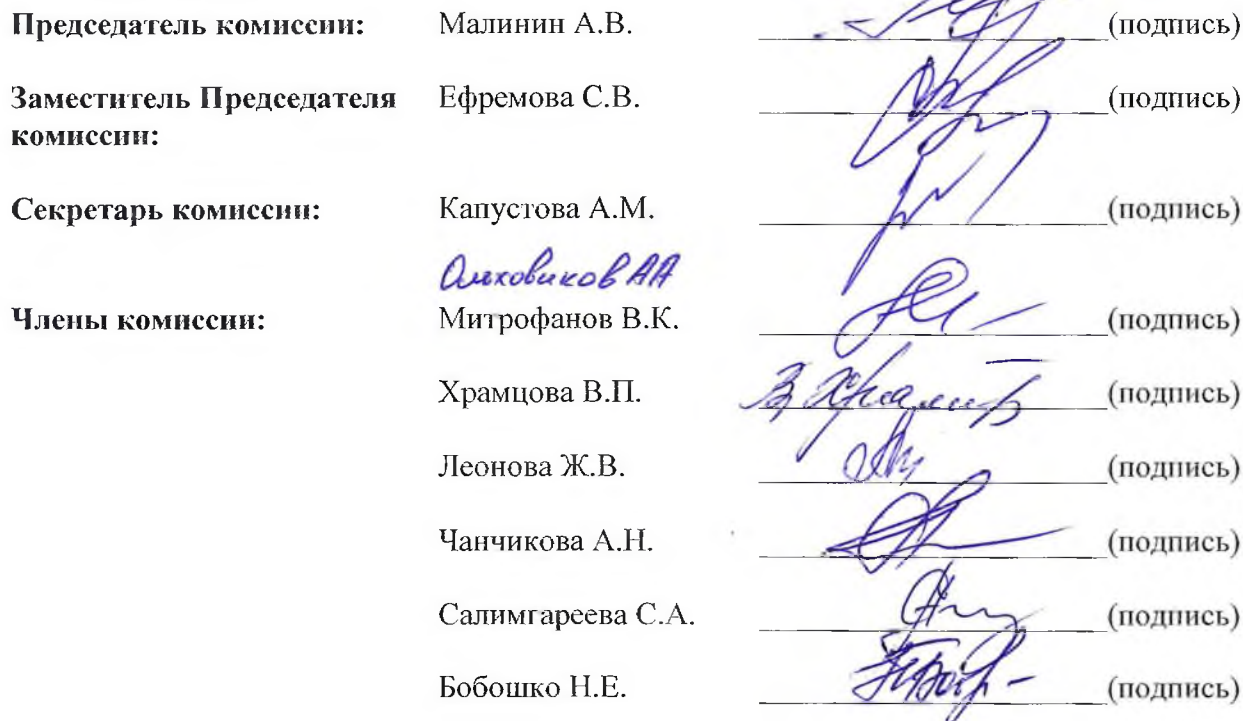 Председатель комиссии: Малинин А.В. (подпись)
Заместитель Председателя Ефремова С.В. (подпись)
комиссии:
Секретарь комиссии: Капустова А.М. (подпись)
Ольховиков АА
Члены комиссии: Митрофанов В.К. (подпись)
Храмцова В.П. (подпись)
Леонова Ж.В. (подпись)
Чанчикова А.Н. (подпись)
Салимгареева С.А. (подпись)
Бобошко Н.Е. (подпись)